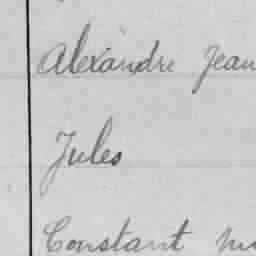 Alexandre Jean
Jules
Constant